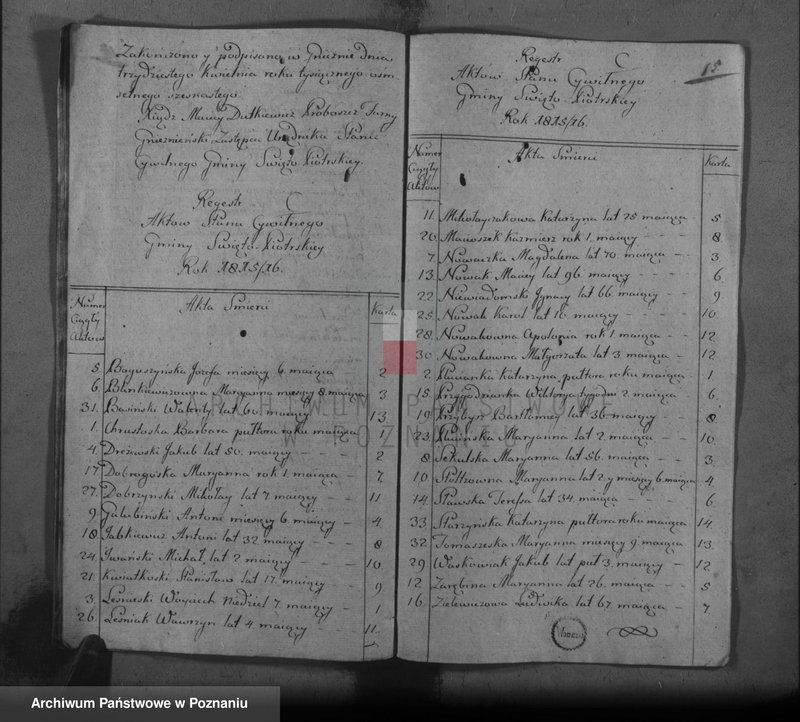 Zakończono y podpisano w Gnieznie dnia
trzydziestego kwietnia roku tysiącznego osm
setnego szesnastego.
Xiądz Maciey Dutkiewicz Proboszcz Farny
Gnieznieński Zastępca Urzędnika Stanu
Cywilnego Gminy Swięto Piotrskiey.
Regestr C
Aktow Stanu Cywilnego
Gminy Swięto Piotrskiey
Rok 1815/16.
Numer Ciągły Aktow
Akta Smierci
Karta
5. Boguszyńska Jozefa miesięcy 6. maiąca 2
6. Bienkiewiczowna Maryanna miesięcy 8. maiąca 3
31. Walenty lat 60 maiący 13
1. Barbara pułtora roku maiąca 1
4. Drożewski Jakub lat 50. maiący 2
17. Dobrogoska Maryanna rok 1. maiąca 7
27. Dobrzynski Mikołay lat 7 maiący 11
9. Gałubiński Antoni miesięcy 6. maiący 4
18. Jabkiewicz Antoni lat 32 maiący 8
24. Iwański Michał lat 2 maiący 10
21. Kwiatkoski Stanisław lat 17. maiący 9
3. Lesnieski Woyciech Niedziel 7 maiący 1
26. Leśniak Wawrzyn lat 4. maiący 11
15
Regestr C
Aktow Stanu Cywilnego
Gminy Swięto Piotrskiey
Rok 1815/16.
Numer Ciągły Aktow
Akta Smierci
Karta
11. Mikołayczakowa Katarzyna lat 25 maiąca 5
20. Manoszek Kazmierz rok 1. maiący 8
7. Nowaczka Magdalena lat 70. maiąca 3
13. Nowak Maciey lat 96. maiący 6
22. Niewiadomski Ignacy lat 66. maiący 9
25. Nowak Karol lat 10. maiący 10
28. Nowakowna Apolonia rok 1. maiąca 12
30. Nowakowna Małgorzata lat 3. maiąca 12
2. Katarzyna pułtora roku maiąca 1
15. Przygodzianka Wiktorya tygodni 2 maiąca 6
19. Przybysz Bartłomiey lat 36. maiący 8
23. Maryanna lat 2. maiąca 10
8. Sekulska Maryanna lat 56. maiąca 3
10. Maryanna lat 2 y miesięcy 6. maiąca 4
14. Sławska Teressa lat 34. maiąca 6
33. Starzyńska Katarzyna pułtora roku maiąca 14
32. Tomaszeska Maryanna miesięcy 9. maiąca 13
29. Waśkowiak Jakub lat puł 3. maiący 12
12. Zarębina Maryanna lat 26. maiąca 5
16. Zielewiczowa Ludwika lat 67. maiąca 7
Archiwum Państwowe w Poznaniu